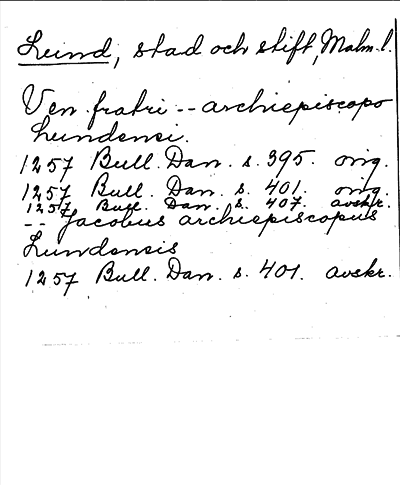 Lund, stad och stift, Malm. l.
Ven. fratri -- archiepiscopo
Lundensi.
1257 Bull. Dan. s. 395. orig.
1257 Bull. Dan. s. 401. orig.
1257 Bull. Dan. s. 407. avskr.
-- Jacobus archiepiscopus
Lundensis
1257 Bull. Dan. s. 401. avskr.